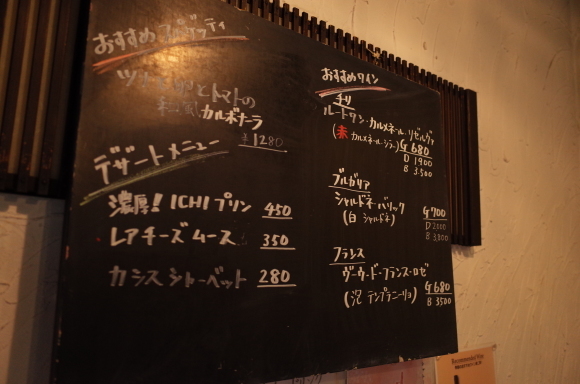 おすすめスパゲッティ
ツナと卵とトマトの
和風カルボナーラ
¥1280
デザートメニュー
濃厚!ICHIプリン 450
レアチーズムース 350
カシスシャーベット 280
おすすめワイン
チリ
ルートワン・カルメネール・リゼルヴァ
(赤 カルメネール・シラー) G 680
D 1900
B 3.500
ブルガリア
シャルドネ・バリック G 900
(白 シャルドネ) D
B 3.800
フランス
ヴーヴ・ド・フランス・ロゼ
(泡 テンプラニーリョ) G 680
B 3500